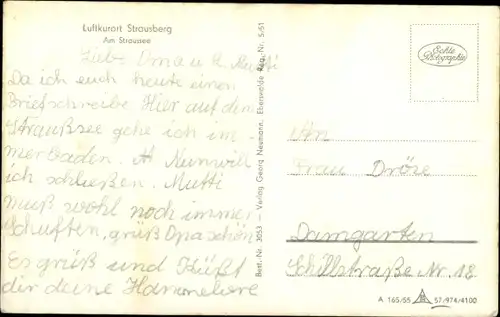 Luftkurort Strausberg
Am Straussee
Liebe Oma u. L. Mutti
Da ich euch heute einen
Brief schreibe Hier auf dem
Straußsee gehe ich im-
mer Baden. Nun will
ich schließen. Mutti
muß wohl noch immer
Schuften, grüß Opa schön
Es grüß und Küßt
dir deine Hannelore
Best.-Nr. 3053 - Verlag Georg Neumann, Eberswalde Reg. Nr. 5/51
Echte
Photographie
An
Frau Dröse
Damgarten
Schillstraße Nr. 18
A 165/55 57/974/4100